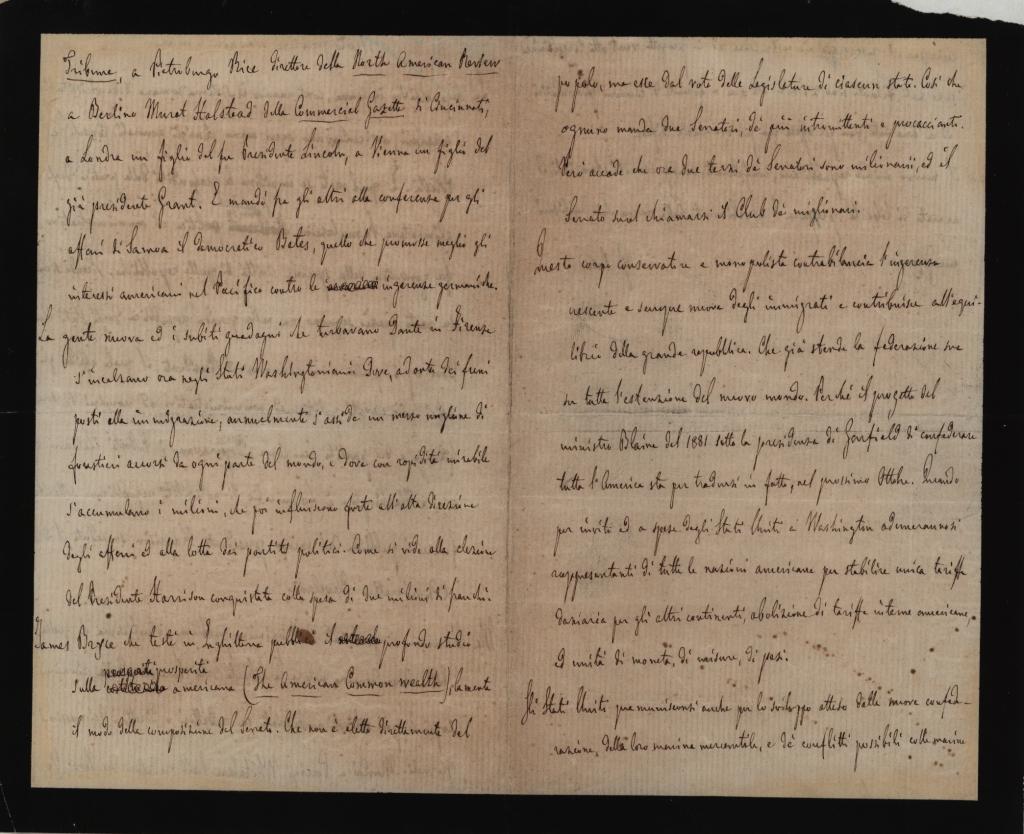 Tribune, a Pietroburgo Rice direttore della North American Review
a Berlino Murat Halstead della Commercial Gazette di Cincinnati,
a Londra un figlio del fu Presidente Lincoln, a Vienna un figlio del
già presidente Grant. E mandò fra gli altri alla conferenza per gli
affari di Samoa il democratico Bates, quello che promosse meglio gli
interessi americani nel Pacifico contro le ingerenze germaniche.
La gente nuova ed i subiti guadagni che turbavano Dante in Firenze
s'incalzano ora negli Stati Washingtoniani. Dove, ad onta dei freni
posti alla immigrazione, annualmente s'asside un mezzo miglione di
forastieri accorsi da ogni parte del mondo, e dove con rapidità mirabile
s'accumulano i milioni, che poi influiscono forte all'alta direzione
degli affari ed alla lotta dei partiti politici. Come si vide alla elezione
del Presidente Harrison conquistata colla spesa di due milioni di franchi.
James Bryce che testè in Inghilterra pubblicò il profondo studio
sulla prosperità americana (The American Common wealth), lamenta
il modo della composizione del Senato. Che non è eletto direttamente dal
popolo, ma esce dal voto delle Legislature di ciascun stato. Così che
ognuno manda due Senatori, de' più intromittenti e procaccianti.
Però accade che ora due terzi de' Senatori sono milionarii, ed il
Senato suol chiamarsi il Club de' miglionari.
Questo corpo conservatore e monopolista contrabilancia l'ingerenza
crescente e sempre nuova degli immigrati e contribuisce all'equi-
librio della grande repubblica. Che già stende la federazione sua
su tutta l'estensione del nuovo mondo. Perché il progetto del
ministro Blaine del 1881 sotto la presidenza di Garfield di confederare
tutta l'America sta per tradursi in fatto, nel prossimo Ottobre. Quando
per invito ed a spese degli Stati Uniti a Washington aduneranno si
rappresentanti di tutte le nazioni americane per stabilire unica tariffa
daziaria per gli altri continenti, abolizione di tariffe interne americane,
ed unità di moneta, di misure, di pesi.
Gli Stati Uniti premunisconsi anche per lo sviluppo atteso dalla nuova confed-
razione, della loro marina mercantile, e de' conflitti possibili colle marine